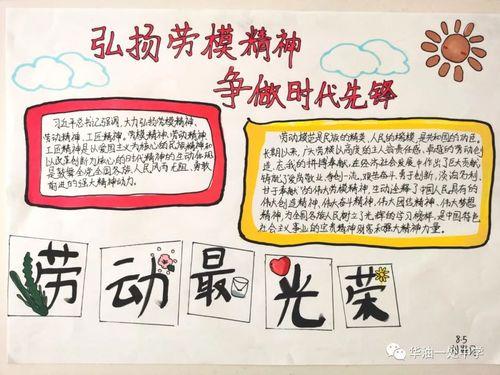 弘扬劳模精神
争做时代先锋
习近平总书记强调,大力弘扬劳模精神、
劳动精神、工匠精神。劳模精神、劳动精神、
工匠精神是以爱国主义为核心的民族精神和
以改革创新为核心的时代精神的生动体现
是鼓舞全党全国各族人民风雨无阻、勇敢
前进的强大精神动力。
劳动模范是民族的精英、人民的楷模,是共和国的功臣。
长期以来,广大劳模以高度的主人翁责任感、卓越的劳动创
造、忘我的拼搏奉献,在经济社会发展中作出了巨大贡献,
铸就了爱岗敬业、争创一流、艰苦奋斗、勇于创新、淡泊名利、
甘于奉献的伟大劳模精神,生动诠释了中国人民具有的
伟大创造精神、伟大奋斗精神、伟大团结精神、伟大梦想
精神,为全国各族人民树立了光辉的学习榜样,是中国特色
社会主义事业的宝贵精神财富和强大精神力量。
劳动最光荣
8.5
华油一处中学